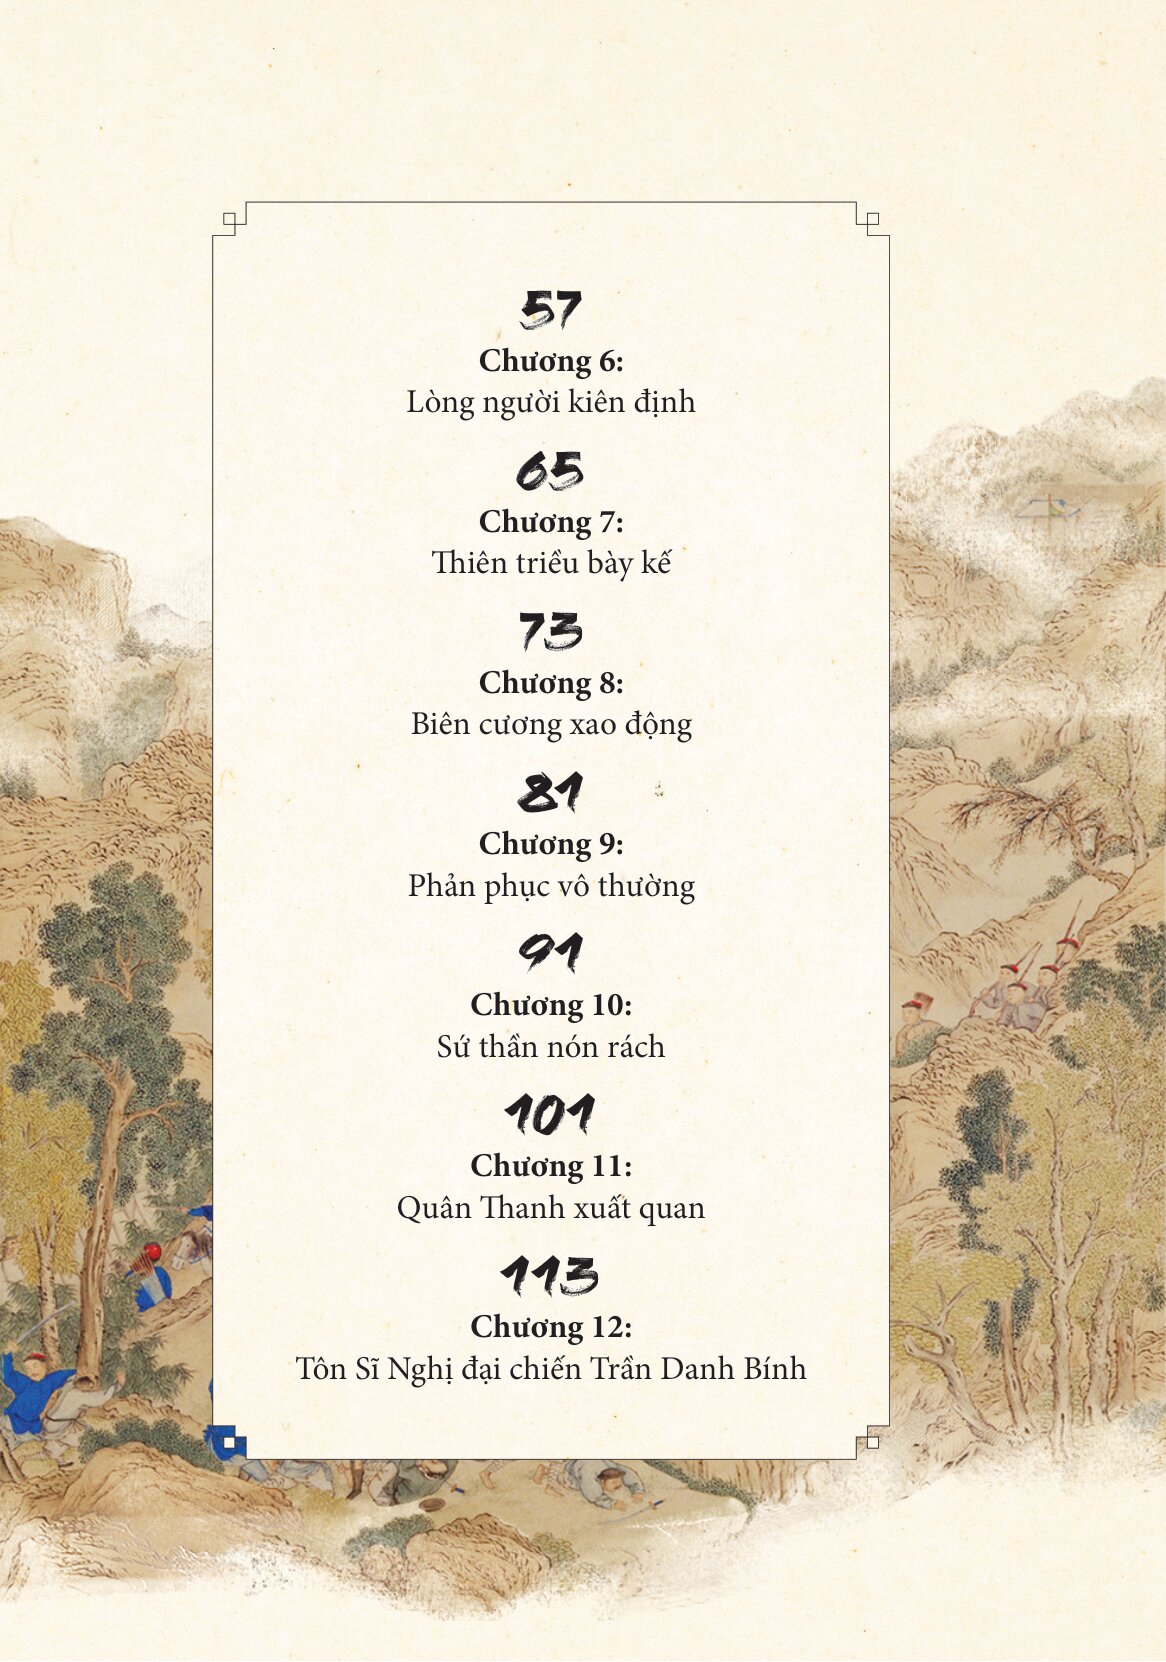 57
Chương 6:
Lòng người kiên định
65
Chương 7:
Thiên triều bày kế
73
Chương 8:
Biên cương xao động
81
Chương 9:
Phản phục vô thường
91
Chương 10:
Sứ thần nón rách
101
Chương 11:
Quân Thanh xuất quan
113
Chương 12:
Tôn Sĩ Nghị đại chiến Trần Danh Bính